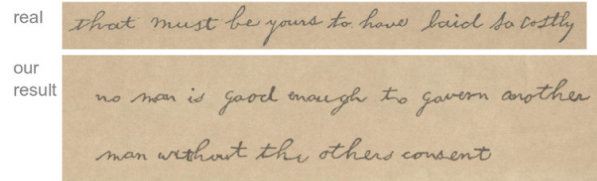 real
that must be yours to have laid so costly
our
result
no man is good enough to govern another
man without the others consent